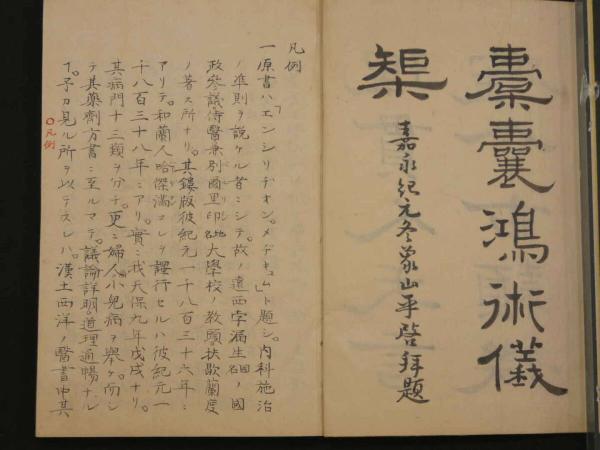 橐囊鴻術儀
榘
嘉永紀元冬象山平啓拜題
凡例
一原書ハ「エンシリヂオン。メヂキュム」ト題シ。内科施治
ノ準則ヲ説ケル者ニシテ。故ノ遠西孛漏生國名ノ國
政參議侍醫兼別爾里印地名大學校ノ教頭扶歇蘭度
ノ著ス所ナリ。其鏤版彼紀元一千八百三十六年ニ
アリテ。和蘭人哈傑滿コレヲ譯行セルハ彼紀元一
千八百三十八年ニアリ。實ニ我天保九年戊戌ナリ。
其病門十三類ヲ分チ。更ニ婦人小兒病ヲ舉ケ。而シ
テ其藥劑方書ニ至ルマテ。議論詳明。道理通暢ナル
丁。予カ見ル所ヲ以テスレハ。漢土西洋ノ醫書中其
凡例